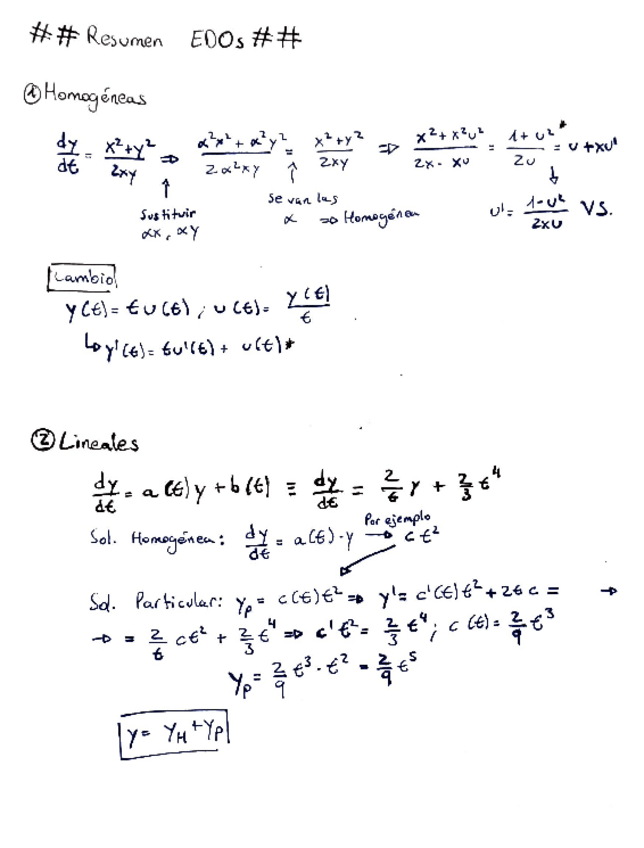 ## Resumen EDOs ##
① Homogéneas
dy/dt = x²+y²/2xy ⇒ α²x²+α²y²/2α²xy = x²+y²/2xy ⇒ x²+x²u²/2x·xu = 1+u²/2u * = u+xu'
↑ Sustituir αx, αy
↑ Se van las α ⇒ Homogénea
↓ u' = 1-u²/2xu VS.
Cambio
y(t) = t u(t) ; u(t) = y(t)/t
↳ y'(t) = t u'(t) + u(t) *
② Lineales
dy/dt = a(t) y + b(t) ≡ dy/dt = 2/t y + 2/3 t⁴
Sol. Homogénea: dy/dt = a(t)·y Por ejemplo → c t²
Sol. Particular: yp = c(t)t² ⇒ y' = c'(t)t² + 2t c = →
→ = 2/t ct² + 2/3 t⁴ ⇒ c't² = 2/3 t⁴ ; c(t) = 2/9 t³
yp = 2/9 t³ · t² = 2/9 t⁵
y = yH + yp